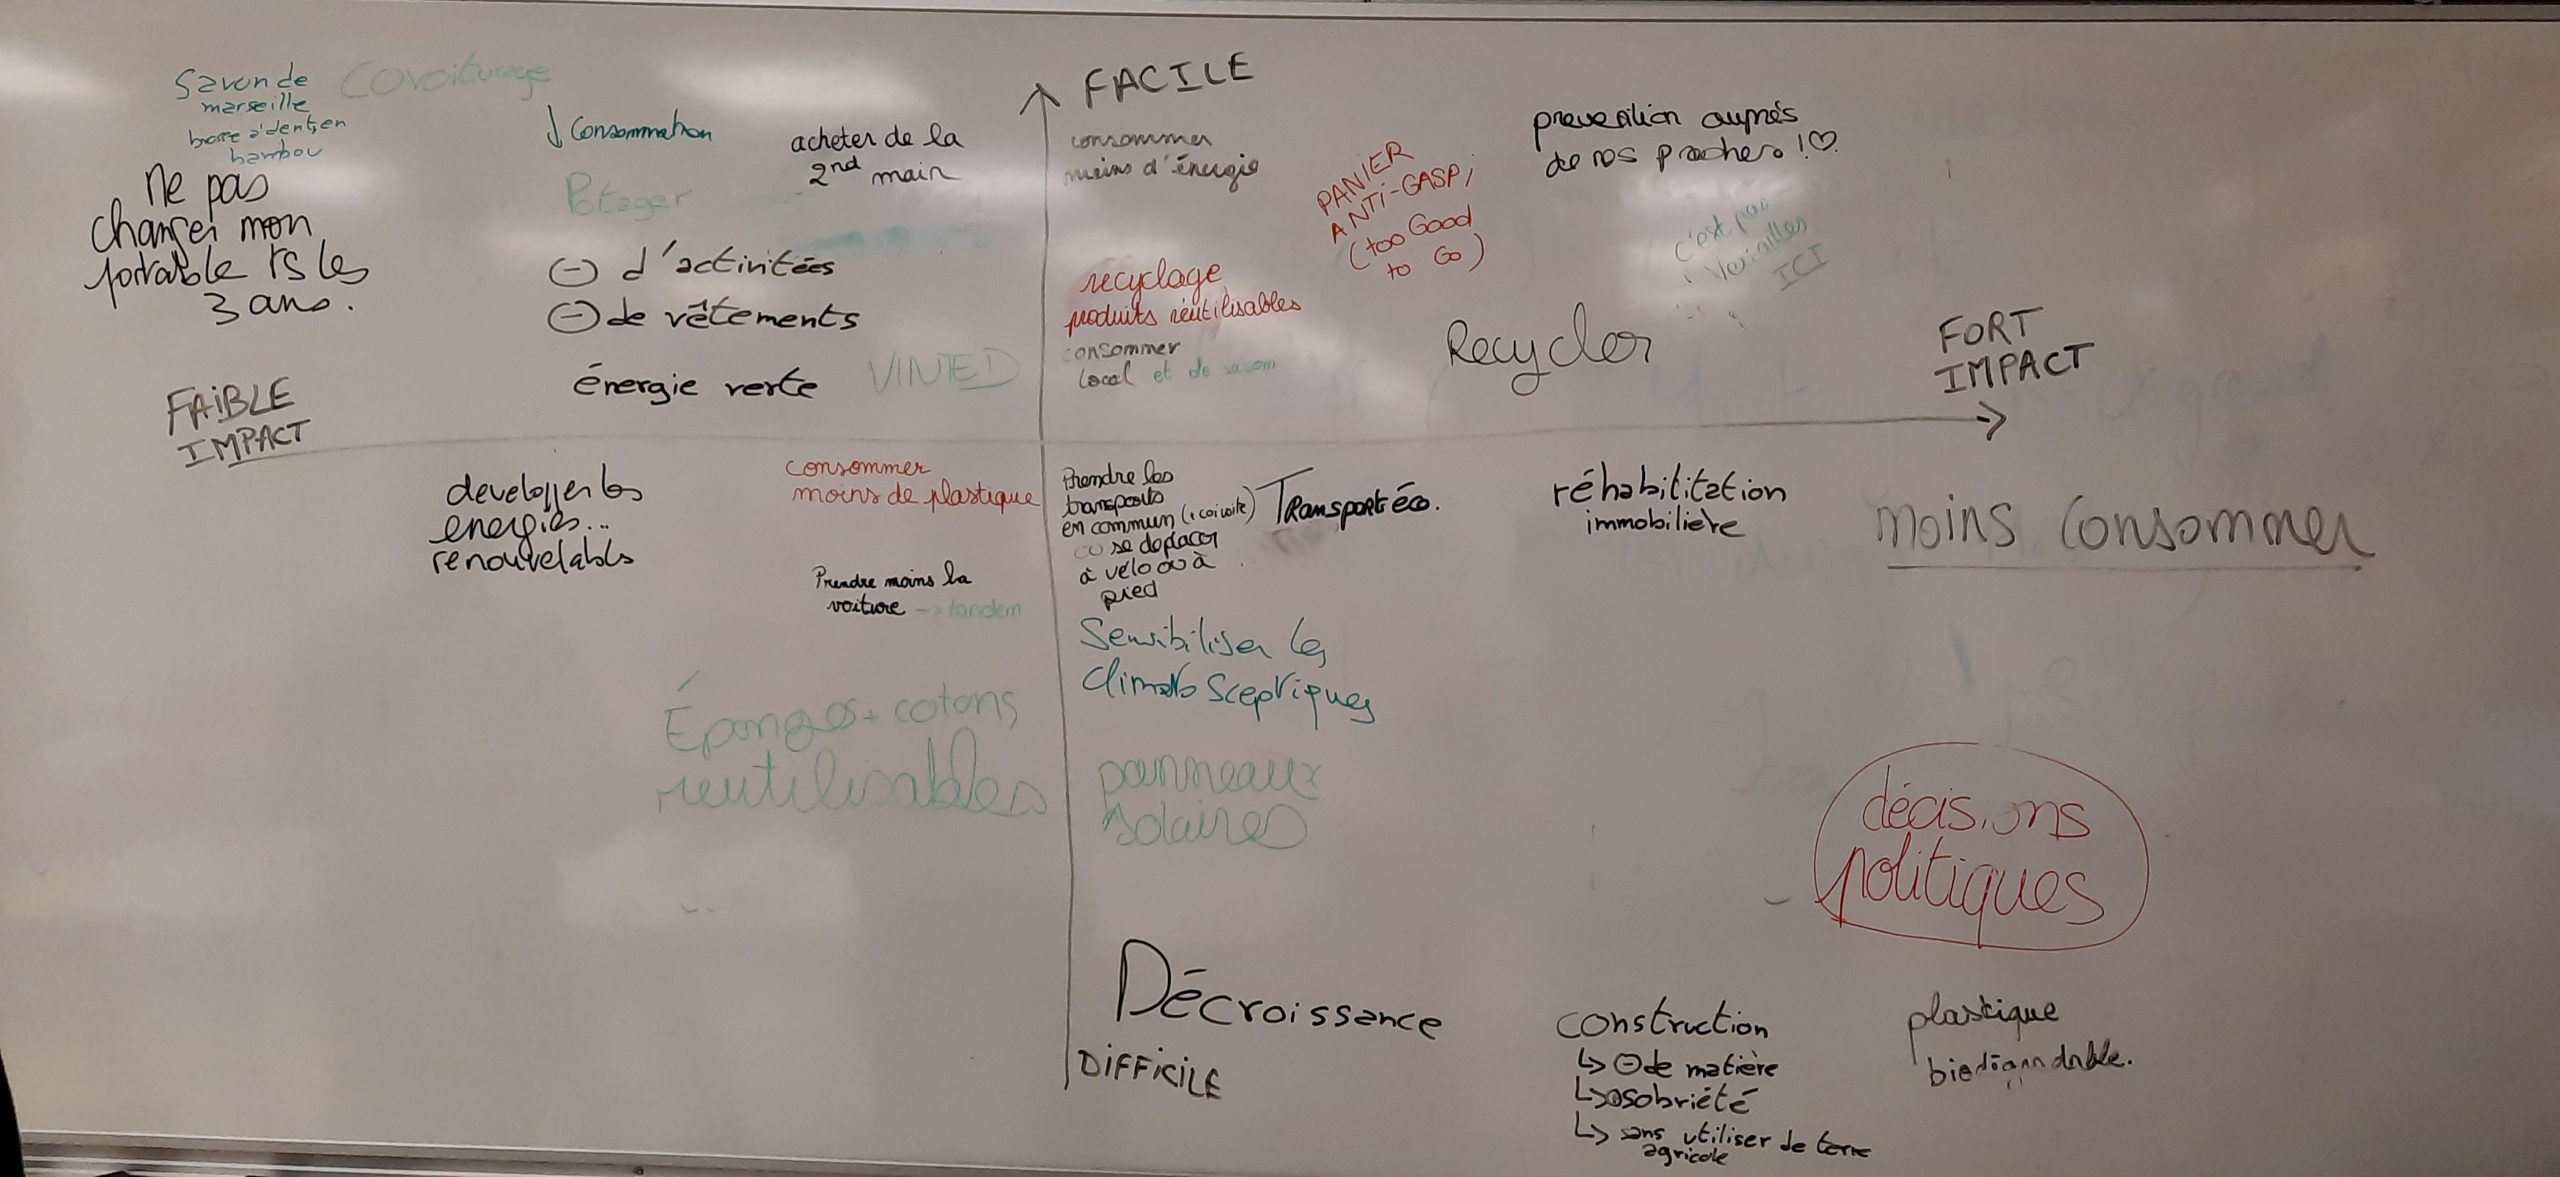 Savon de
marseille
brosse à dents en
bambou
Covoiturage
ne pas
changer mon
portable ts les
3 ans.
↓ Consommation
Potager
acheter de la
2nd main
⊖ d'activitées
⊖ de vêtements
énergie verte
VINTED
FAIBLE
IMPACT
FACILE
consommer
moins d'énergie
recyclage
produits réutilisables
consommer
local et de saison
PANIER
ANTI-GASPI
(too Good
to Go)
prevention auprès
de nos proches !♡
c'est pas
Versailles
ICI
Recycler
FORT
IMPACT
developper les
energies...
renouvelables
consommer
moins de plastique
Prendre moins la
voiture -> tandem
Éponges + cotons
réutilisables
Prendre les
transports
en commun
ou se deplacer
à vélo ou à
pied
Transport éco.
réhabilitation
immobilière
moins consommer
Sensibiliser les
climato sceptiques
panneaux
solaires
décisions
politiques
Décroissance
DIFFICILE
construction
↳ ⊖ de matière
↳ sobriété
↳ sans utiliser de terre
agricole
plastique